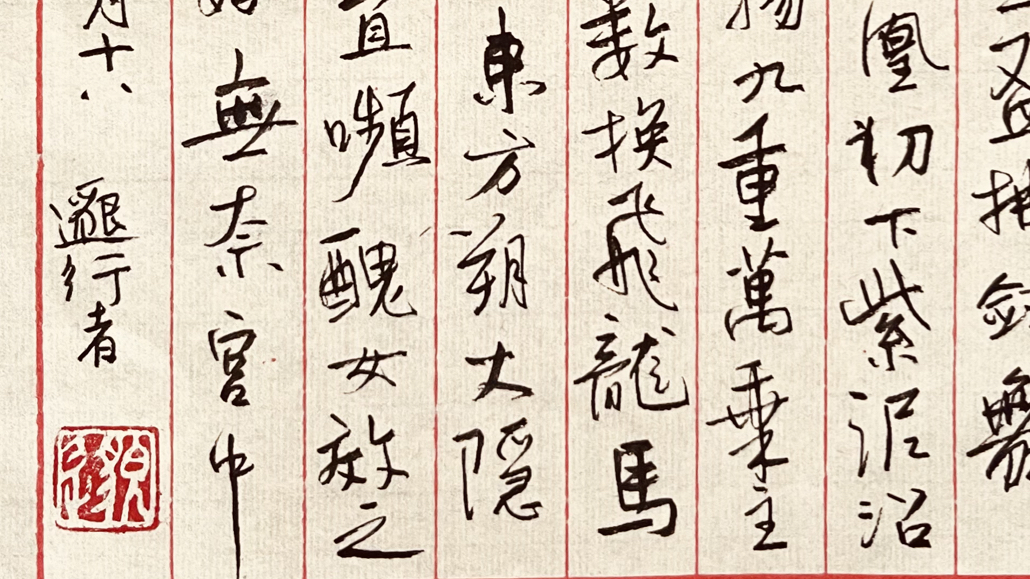 拂劍舞
凰初下紫泥詔
揚九重萬乘主
数換飛龍馬
東方朔大隱
宜嚬醜女效之
好無奈宮中
月十八 邈行者